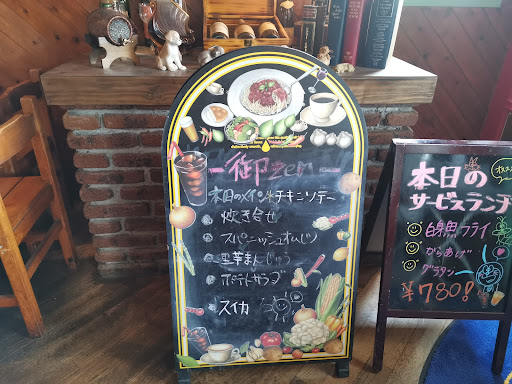 御zen
本日のメイン チキンソテー
炊き合せ
スパニッシュオムレツ
里芋まんじゅう
ポテトサラダ
スイカ
本日の
サービスランチ
白身魚フライ
からあげ
グラタン
¥780!